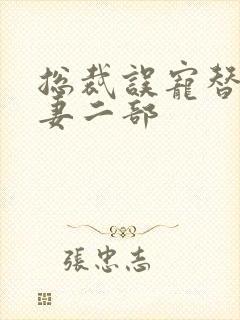 総裁誤寵替
妻二部
張忠志